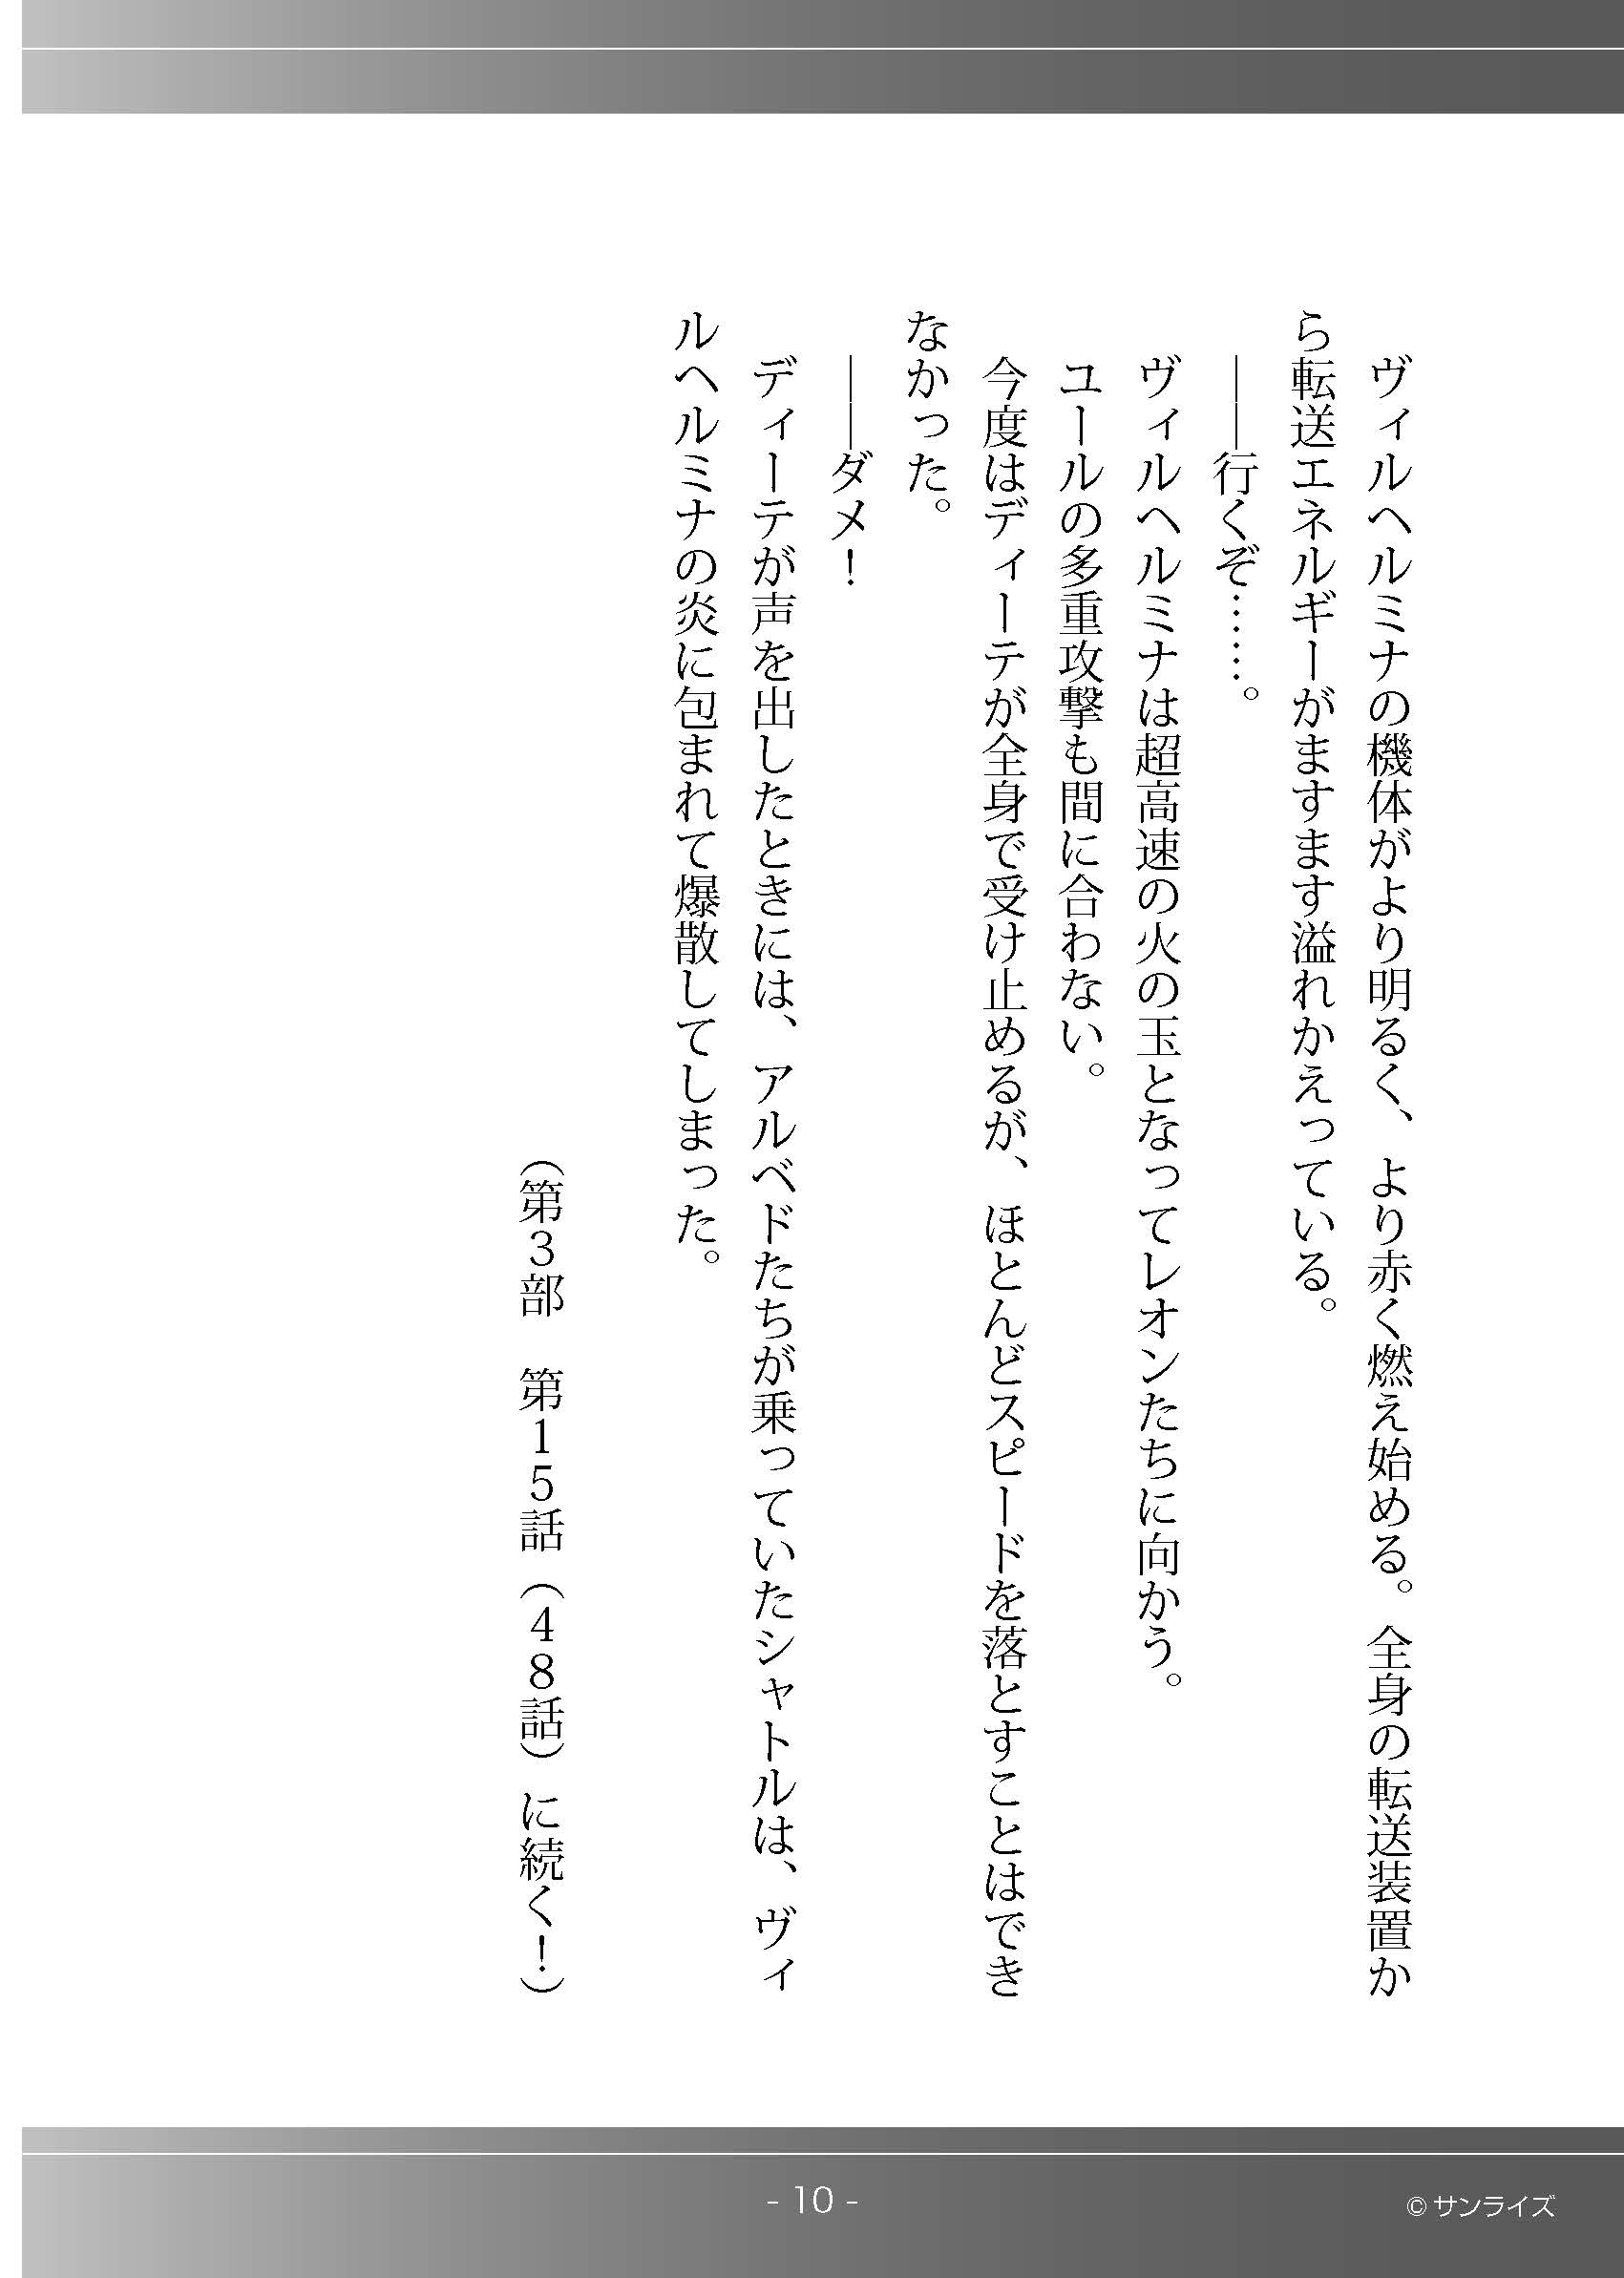 ヴィルヘルミナの機体がより明るく、より赤く燃え始める。全身の転送装置か
ら転送エネルギーがますます溢れかえっている。
　――行くぞ……。
　ヴィルヘルミナは超高速の火の玉となってレオンたちに向かう。
　ユールの多重攻撃も間に合わない。
　今度はディーテが全身で受け止めるが、ほとんどスピードを落とすことはでき
なかった。
　――ダメ！
　ディーテが声を出したときには、アルベドたちが乗っていたシャトルは、ヴィ
ルヘルミナの炎に包まれて爆散してしまった。
（第３部　第１５話（４８話）に続く！）
- 10 -
© サンライズ